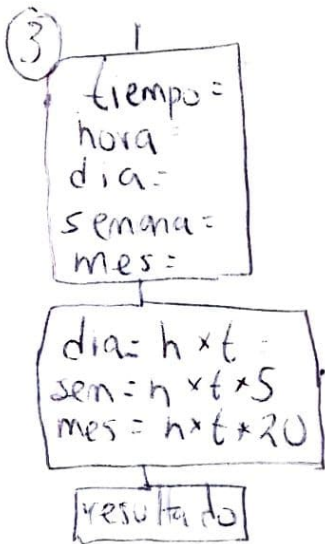 3
tiempo=
hora=
dia=
semana=
mes=
dia= h*t
sem= h*t*5
mes= h*t*20
resultado